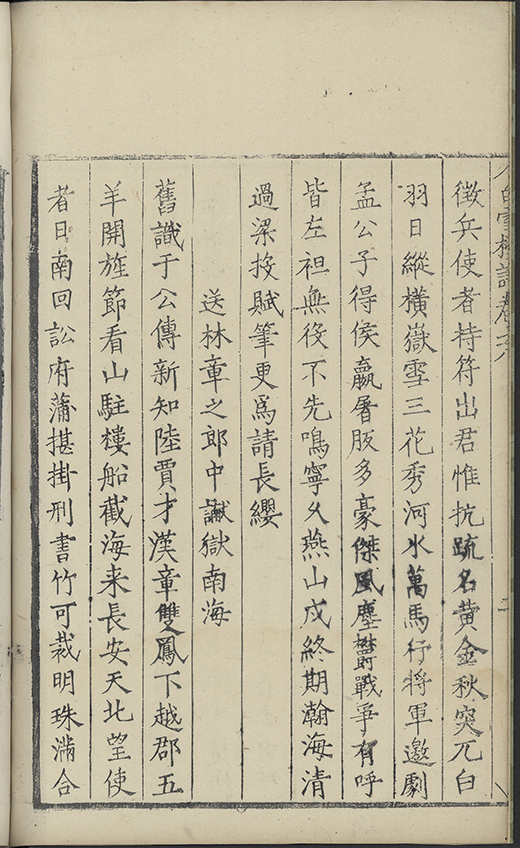 白雪樓詩卷
徵兵使者持符出君惟抗疏名黄金秋突兀白
羽日縱橫嶽雪三花秀河水萬馬行將軍邀劇
孟公子得侯嬴屠販多豪傑風塵欝戰爭有呼
皆左袒無役不先鳴寧久燕山戍終期瀚海清
過梁投賦筆更爲請長纓
送林章之郎中讞獄南海
舊識于公傳新知陸賈才漢章雙鳳下越郡五
羊開旌節看山駐樓船截海来長安天北望使
者日南回訟府蒲堪掛刑書竹可裁明珠滿合